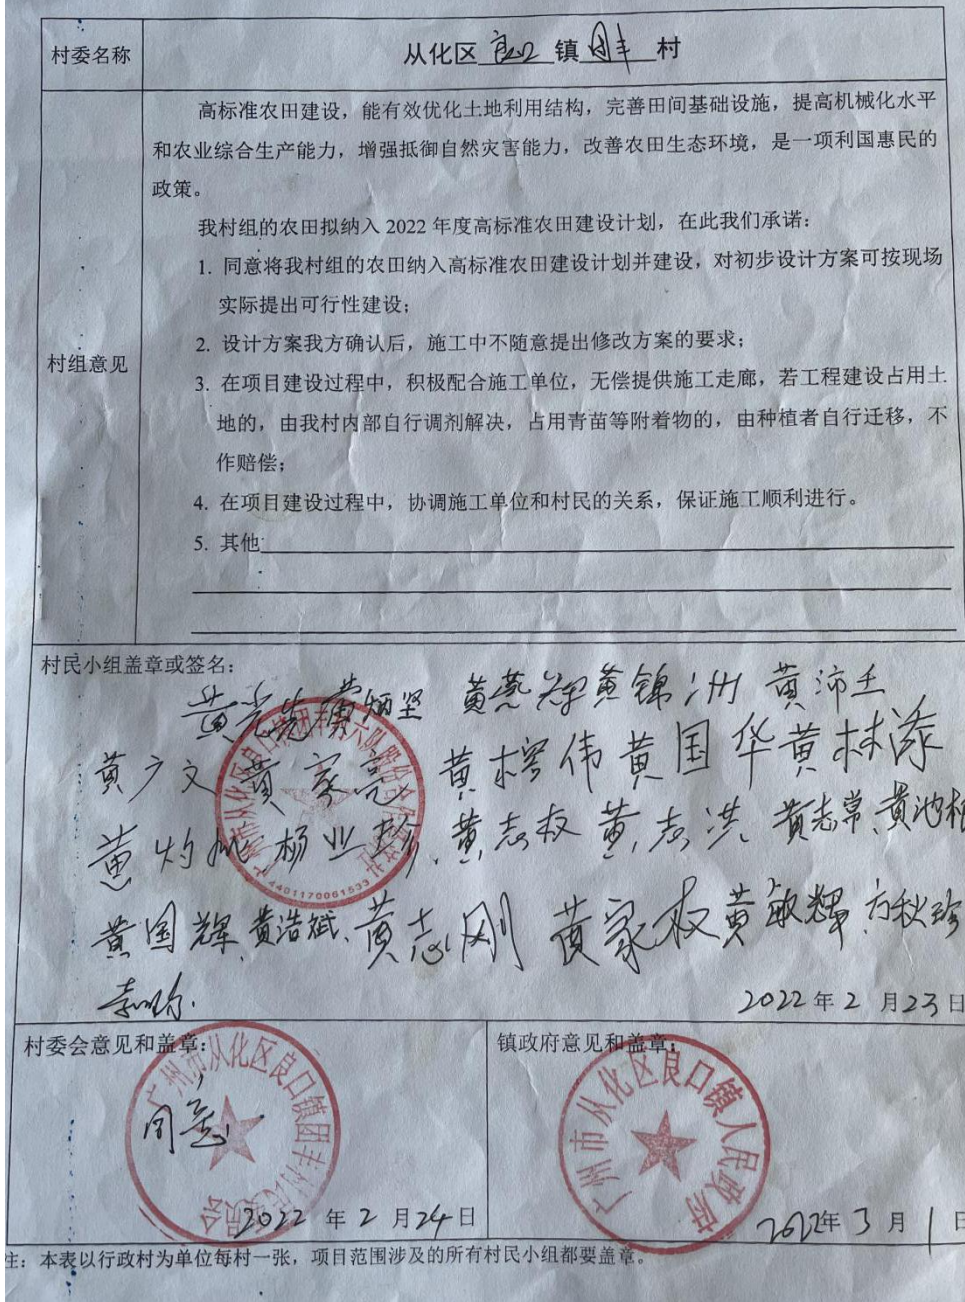 村委名称
从化区良口镇团丰村
高标准农田建设，能有效优化土地利用结构，完善田间基础设施，提高机械化水平
和农业综合生产能力，增强抵御自然灾害能力，改善农田生态环境，是一项利国惠民的
政策。
我村组的农田拟纳入 2022 年度高标准农田建设计划，在此我们承诺：
1. 同意将我村组的农田纳入高标准农田建设计划并建设，对初步设计方案可按现场
实际提出可行性建设；
2. 设计方案我方确认后，施工中不随意提出修改方案的要求；
村组意见
3. 在项目建设过程中，积极配合施工单位，无偿提供施工走廊，若工程建设占用土
地的，由我村内部自行调剂解决，占用青苗等附着物的，由种植者自行迁移，不
作赔偿；
4. 在项目建设过程中，协调施工单位和村民的关系，保证施工顺利进行。
5. 其他
村民小组盖章或签名：
黄炳坚 黄锦洲 黄沛玉
黄广文 黄家亮 黄国华 黄林添
杨业珍、黄志权 黄志洪 黄志常、
黄国辉、黄浩斌、黄志刚 黄家权 黄敏辉、方秋珍
4401170061533
2022 年 2 月 23 日
村委会意见和盖章：
同意
广州市从化区良口镇团丰村民委员会
2022 年 2 月 24 日
镇政府意见和盖章：
广州市从化区良口镇人民政府
2022年 3 月 1 日
注：本表以行政村为单位每村一张，项目范围涉及的所有村民小组都要盖章。